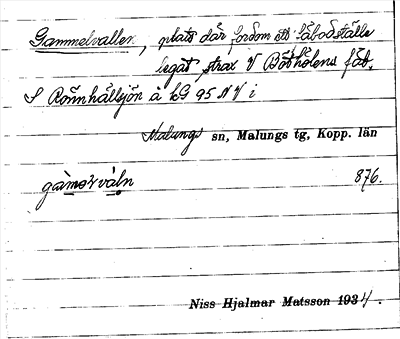 Gammelvallen, plats där fordom ett fäbodställe
legat strax V Böthölens fäb.
S Rönnhällsjön å kG 95 NV i
Malungs sn, Malungs tg, Kopp. län
gàmərvàln 876.
Niss Hjalmar Matsson 1934.